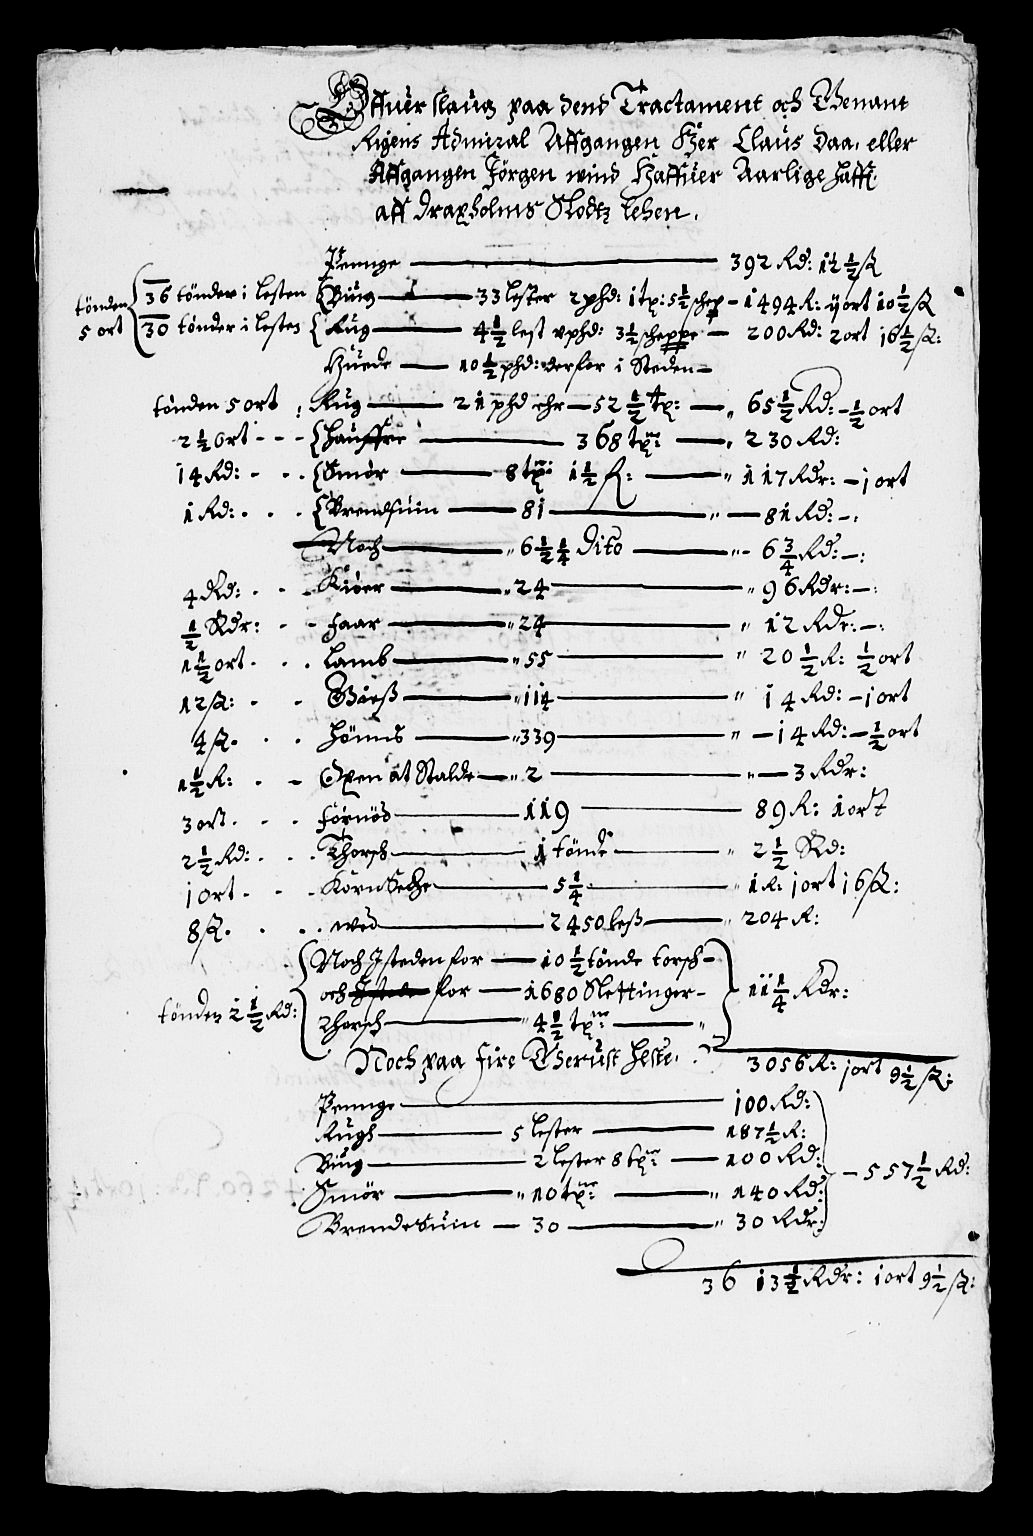 Offuerslaug paa dend Tractament och Genant
Rigens Admiral Affgangen Hær Claus Daa, eller
Affgangen Jörgen wind Haffuer Aarlige hafft
aff Draxholms Slodtz Lehen.
Pennge — 392 Rd: 12 1/2 ß
tönden 5 ort { 36 tönder i Lesten { Biug — 33 lester 2 phd: 1 tp: 5 1/2 schep — 1494 R: 1 ort 10 1/2 ß
30 tönder i Lesten { Rug — 4 1/2 lest phd: 3 1/2 scheppe — 200 Rd: 2 ort 16 1/2 ß:
Huede — 10 1/2 phd: derfor i Steden —
tönden 5 ort : Rug — 21 phd ehr — 52 1/2 tp: — 65 1/2 Rd: — 1/2 ort
2 1/2 ort - - - { hauffre — 368 tpr — 230 Rd:
14 Rd: - - { Smör — 8 tpr: 1 1/2 R: — 117 Rdr: — 1 ort
1 Rd: - - { Brendsuin — 81 — 81 Rd: —:
Noch — 6 1/2 1/4 Dito — 6 3/4 Rd: —:
4 Rd: - - Kiöer — 24 — 96 Rdr: —:
1/2 Rdr: - - faar — 24 — 12 Rdr: —:
1 1/2 ort - - lamb — 55 — 20 1/2 R: 1/2 ort
12 ß: - - Giæß — 114 — 14 Rd: — 1 ort
4 ß. - - hönns — 339 — 14 Rd: — 1/2 ort
1 1/2 R: - - Oxen at Stalde — 2 — 3 Rdr:
3 ort. - - fornöd — 119 — 89 R: 1 ort
2 1/2 Rd: - - Thorsch — 1 tönde — 2 1/2 Rd:
1 ort - - Korn Secke — 5 1/4 — 1 R: 1 ort 16 ß:
8 ß. - - wed — 2450 leß — 204 R:
Noch Isteden for — 10 1/2 tönde torsch —
och Isteden for — 1680 Slettinger —
tönden 2 1/2 Rd: { Thorsch — 4 1/2 tpr: — } 11 1/4 Rdr:
Noch paa fire Gerust heste. 3056 R: 1 ort 9 1/2 ß:
Pennge — 100 Rd:
Rugh — 5 lester — 187 1/2 R:
Biug — 2 lester 8 tpr: — 100 Rd: — 557 1/2 Rd:
Smör — 10 tpr: — 140 Rd:
Brendesuin — 30 — 30 Rdr:
36 13 1/2 Rdr: 1 ort 9 1/2 ß: